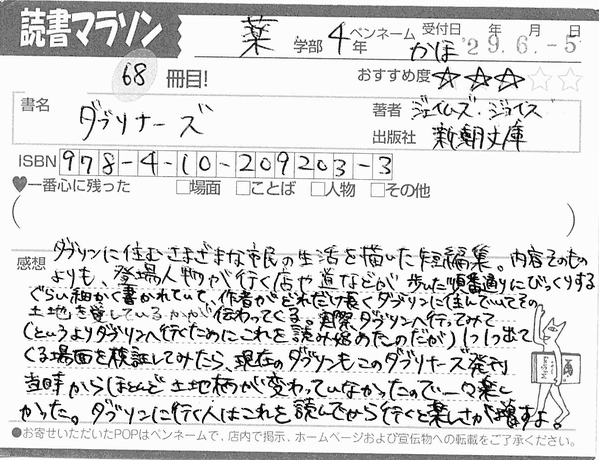 読書マラソン
薬 学部 4年 ペンネーム かほ 受付日 年 月 日 '29.6.-5
68 冊目! おすすめ度 ☆☆☆☆☆
書名 ダブリナーズ
著者 ジェイムズ・ジョイス
出版社 新潮文庫
ISBN 978-4-10-209203-3
♥一番心に残った □場面 □ことば □人物 □その他
感想
ダブリンに住むさまざまな市民の生活を描いた短編集。内容そのもの
よりも、登場人物が行く店や道などが歩いた順番通りにびっくりする
ぐらい細かく書かれていて、作者がどれだけ長くダブリンに住んでいてその
土地を愛しているかが伝わってくる。実際、ダブリンへ行ってみて
(というよりダブリンへ行くためにこれを読み始めたのだが)1つ1つ出て
くる場面を検証してみたら、現在のダブリンもこのダブリナーズ発刊
当時からほとんど土地柄が変わっていなかったので一々楽し
かった。ダブリンに行く人はこれを読んでから行くと楽しさが増すよ。
●お寄せいただいたPOPはペンネームで、店内で掲示、ホームページおよび宣伝物への転載をご了承ください。